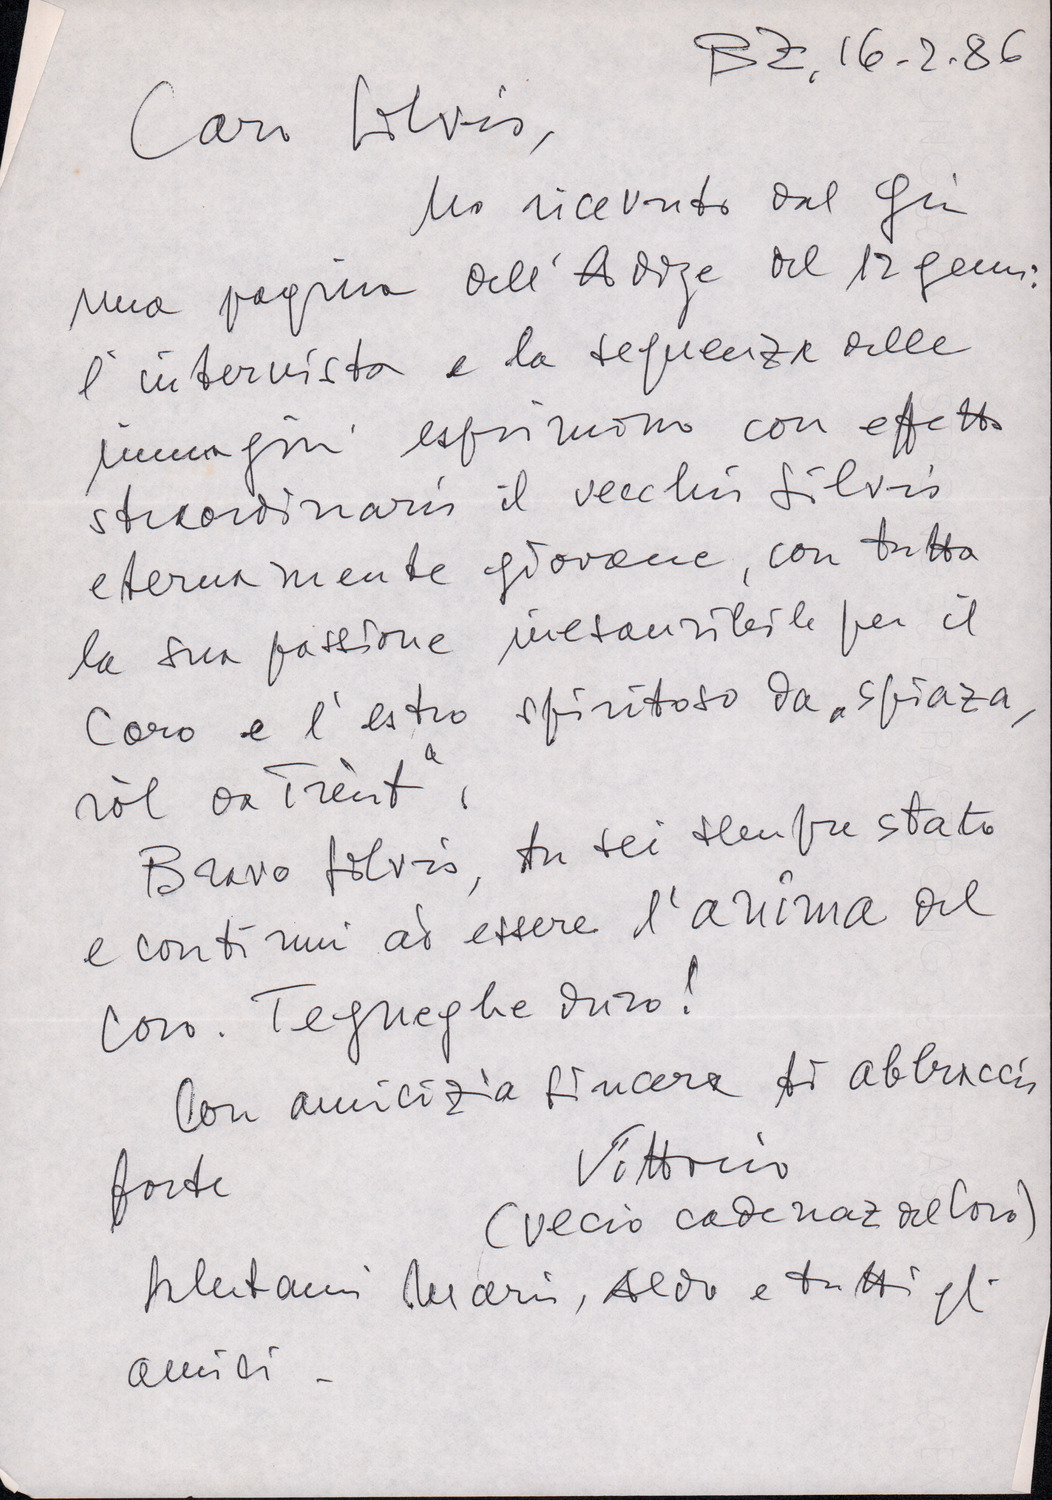 BZ, 16-2-86
Caro Silvio,
ho ricevuto dal Giu
una pagina dell'Adige del 12 genn:
l'intervista e la sequenza delle
immagini esprimono con effetto
straordinario il vecchio Silvio
eternamente giovane, con tutta
la sua passione inesauribile per il
Coro e l'estro spiritoso da „spiaza,
ròl da Trènt“.
Bravo Silvio, tu sei sempre stato
e continui ad essere l'anima del
Coro. Tegneghe duro!
Con amicizia sincera ti abbraccio
forte Vittorio
(vecio cadenaz del Coro)
Salutami Mario, Aldo e tutti gli
amici -